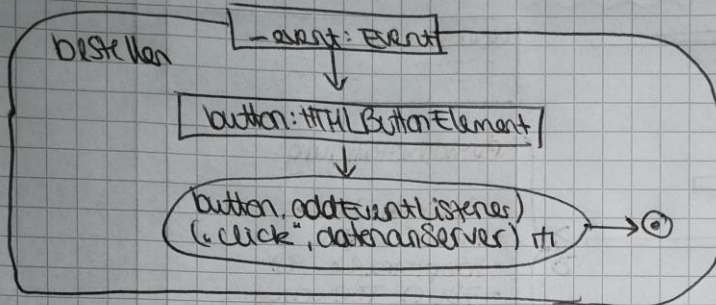 bestellen
_event: Event
button: HTMLButtonElement
button.addEventListener)
(„click“, datenanServer)